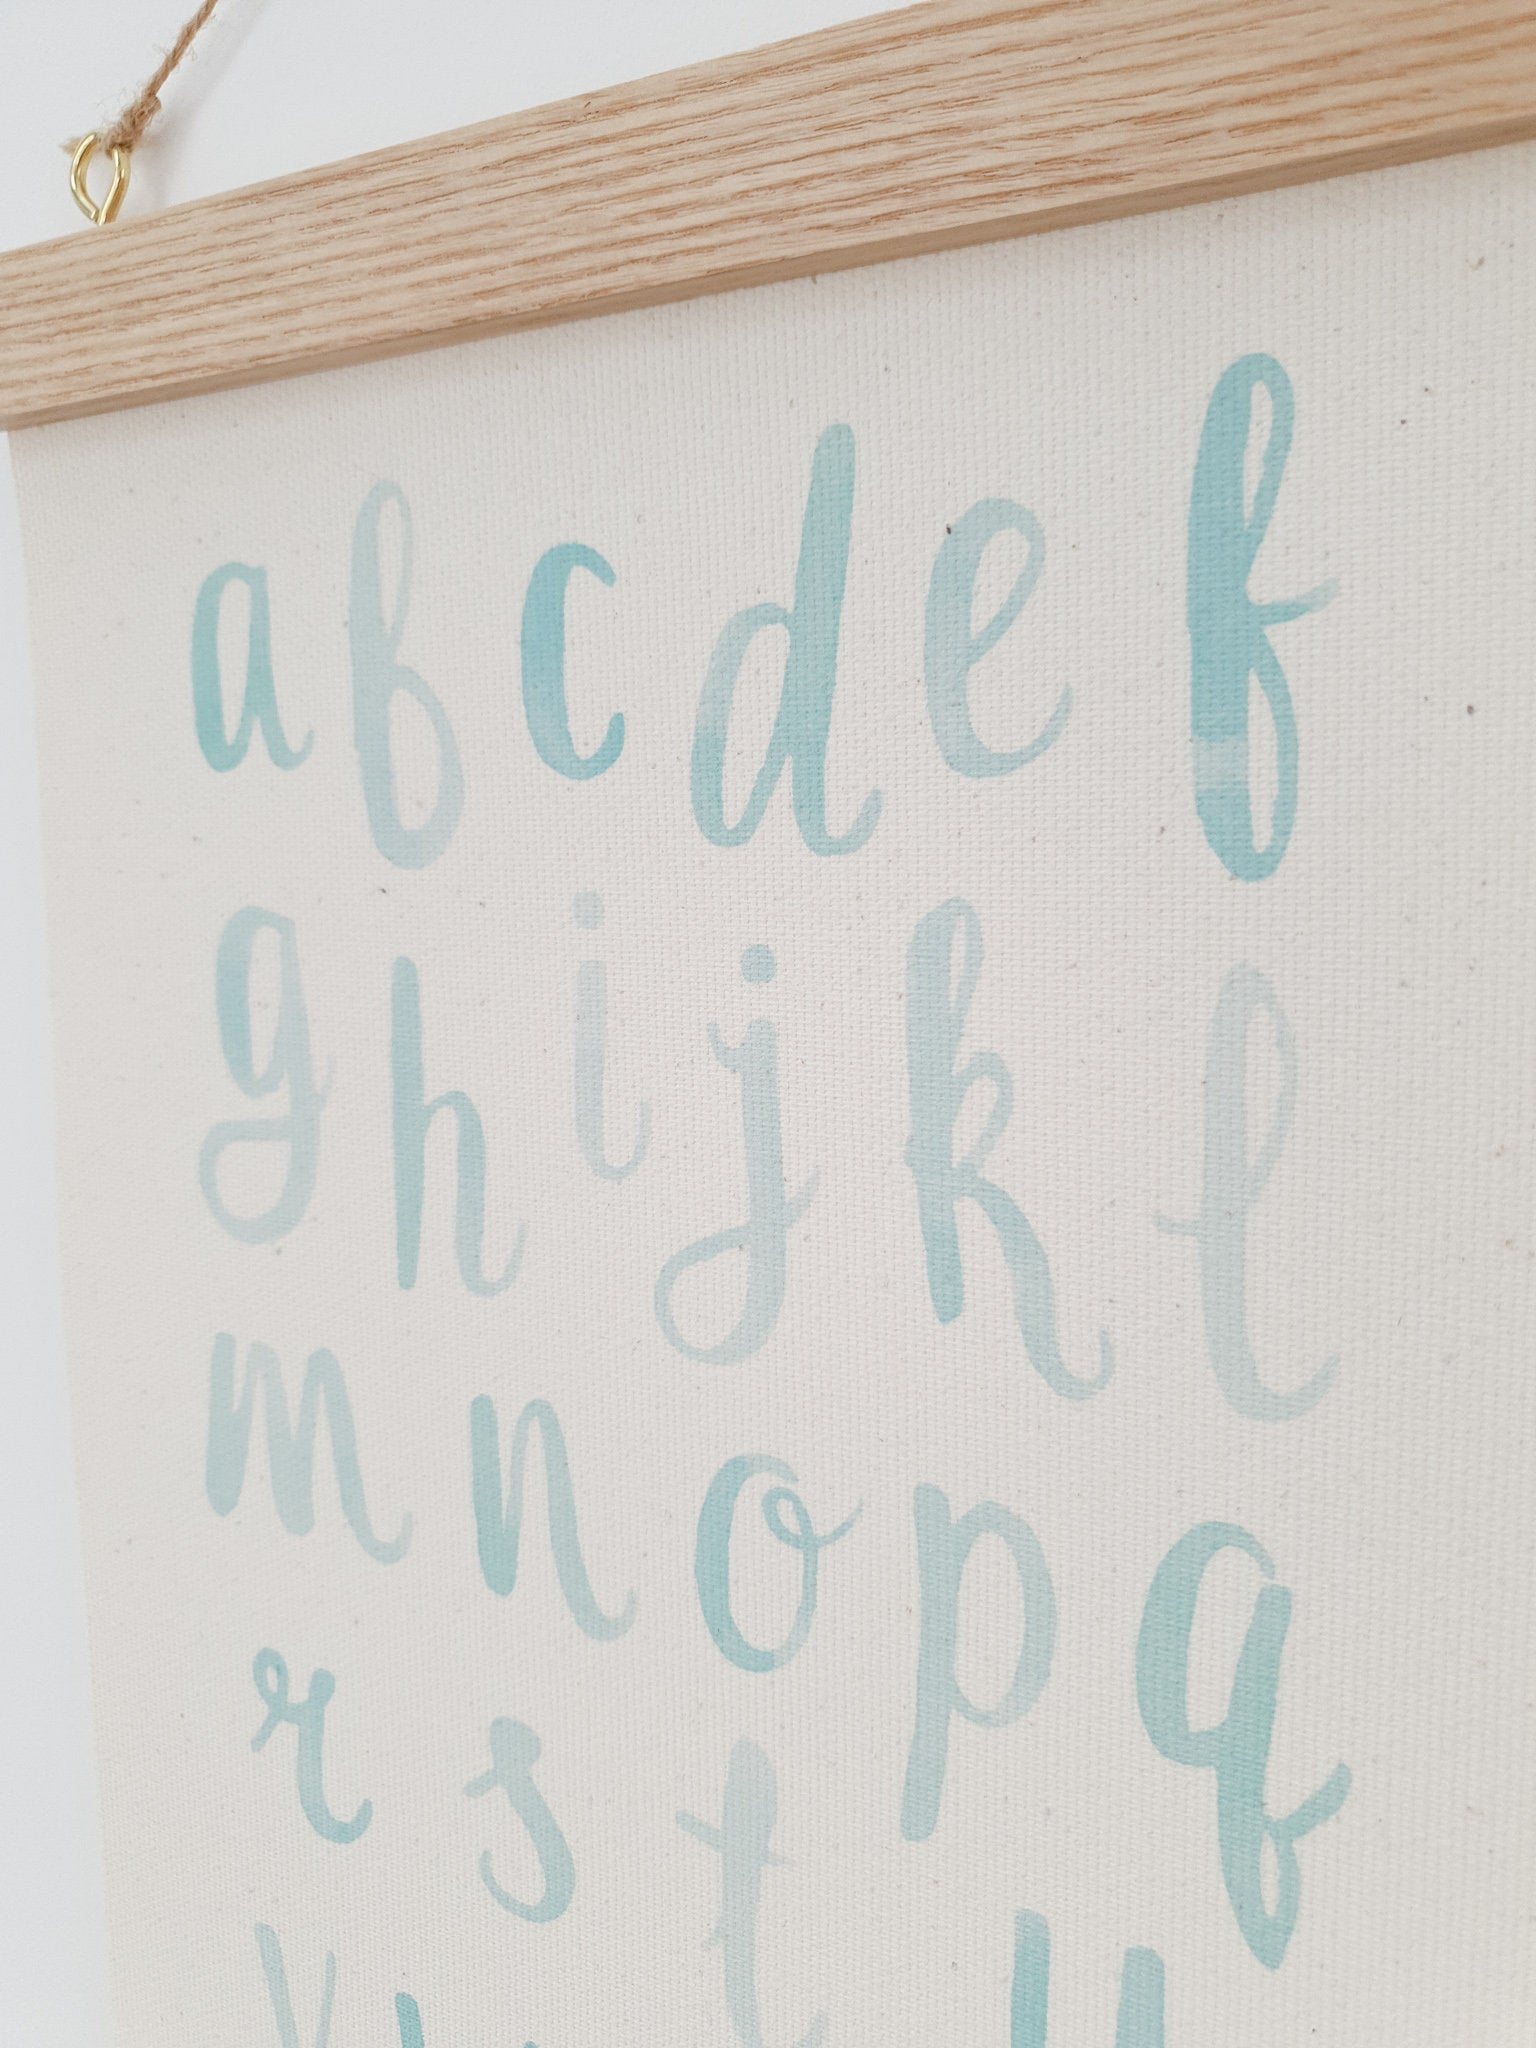 a b c d e f
g h i j k l
m n o p q
r s t u
v